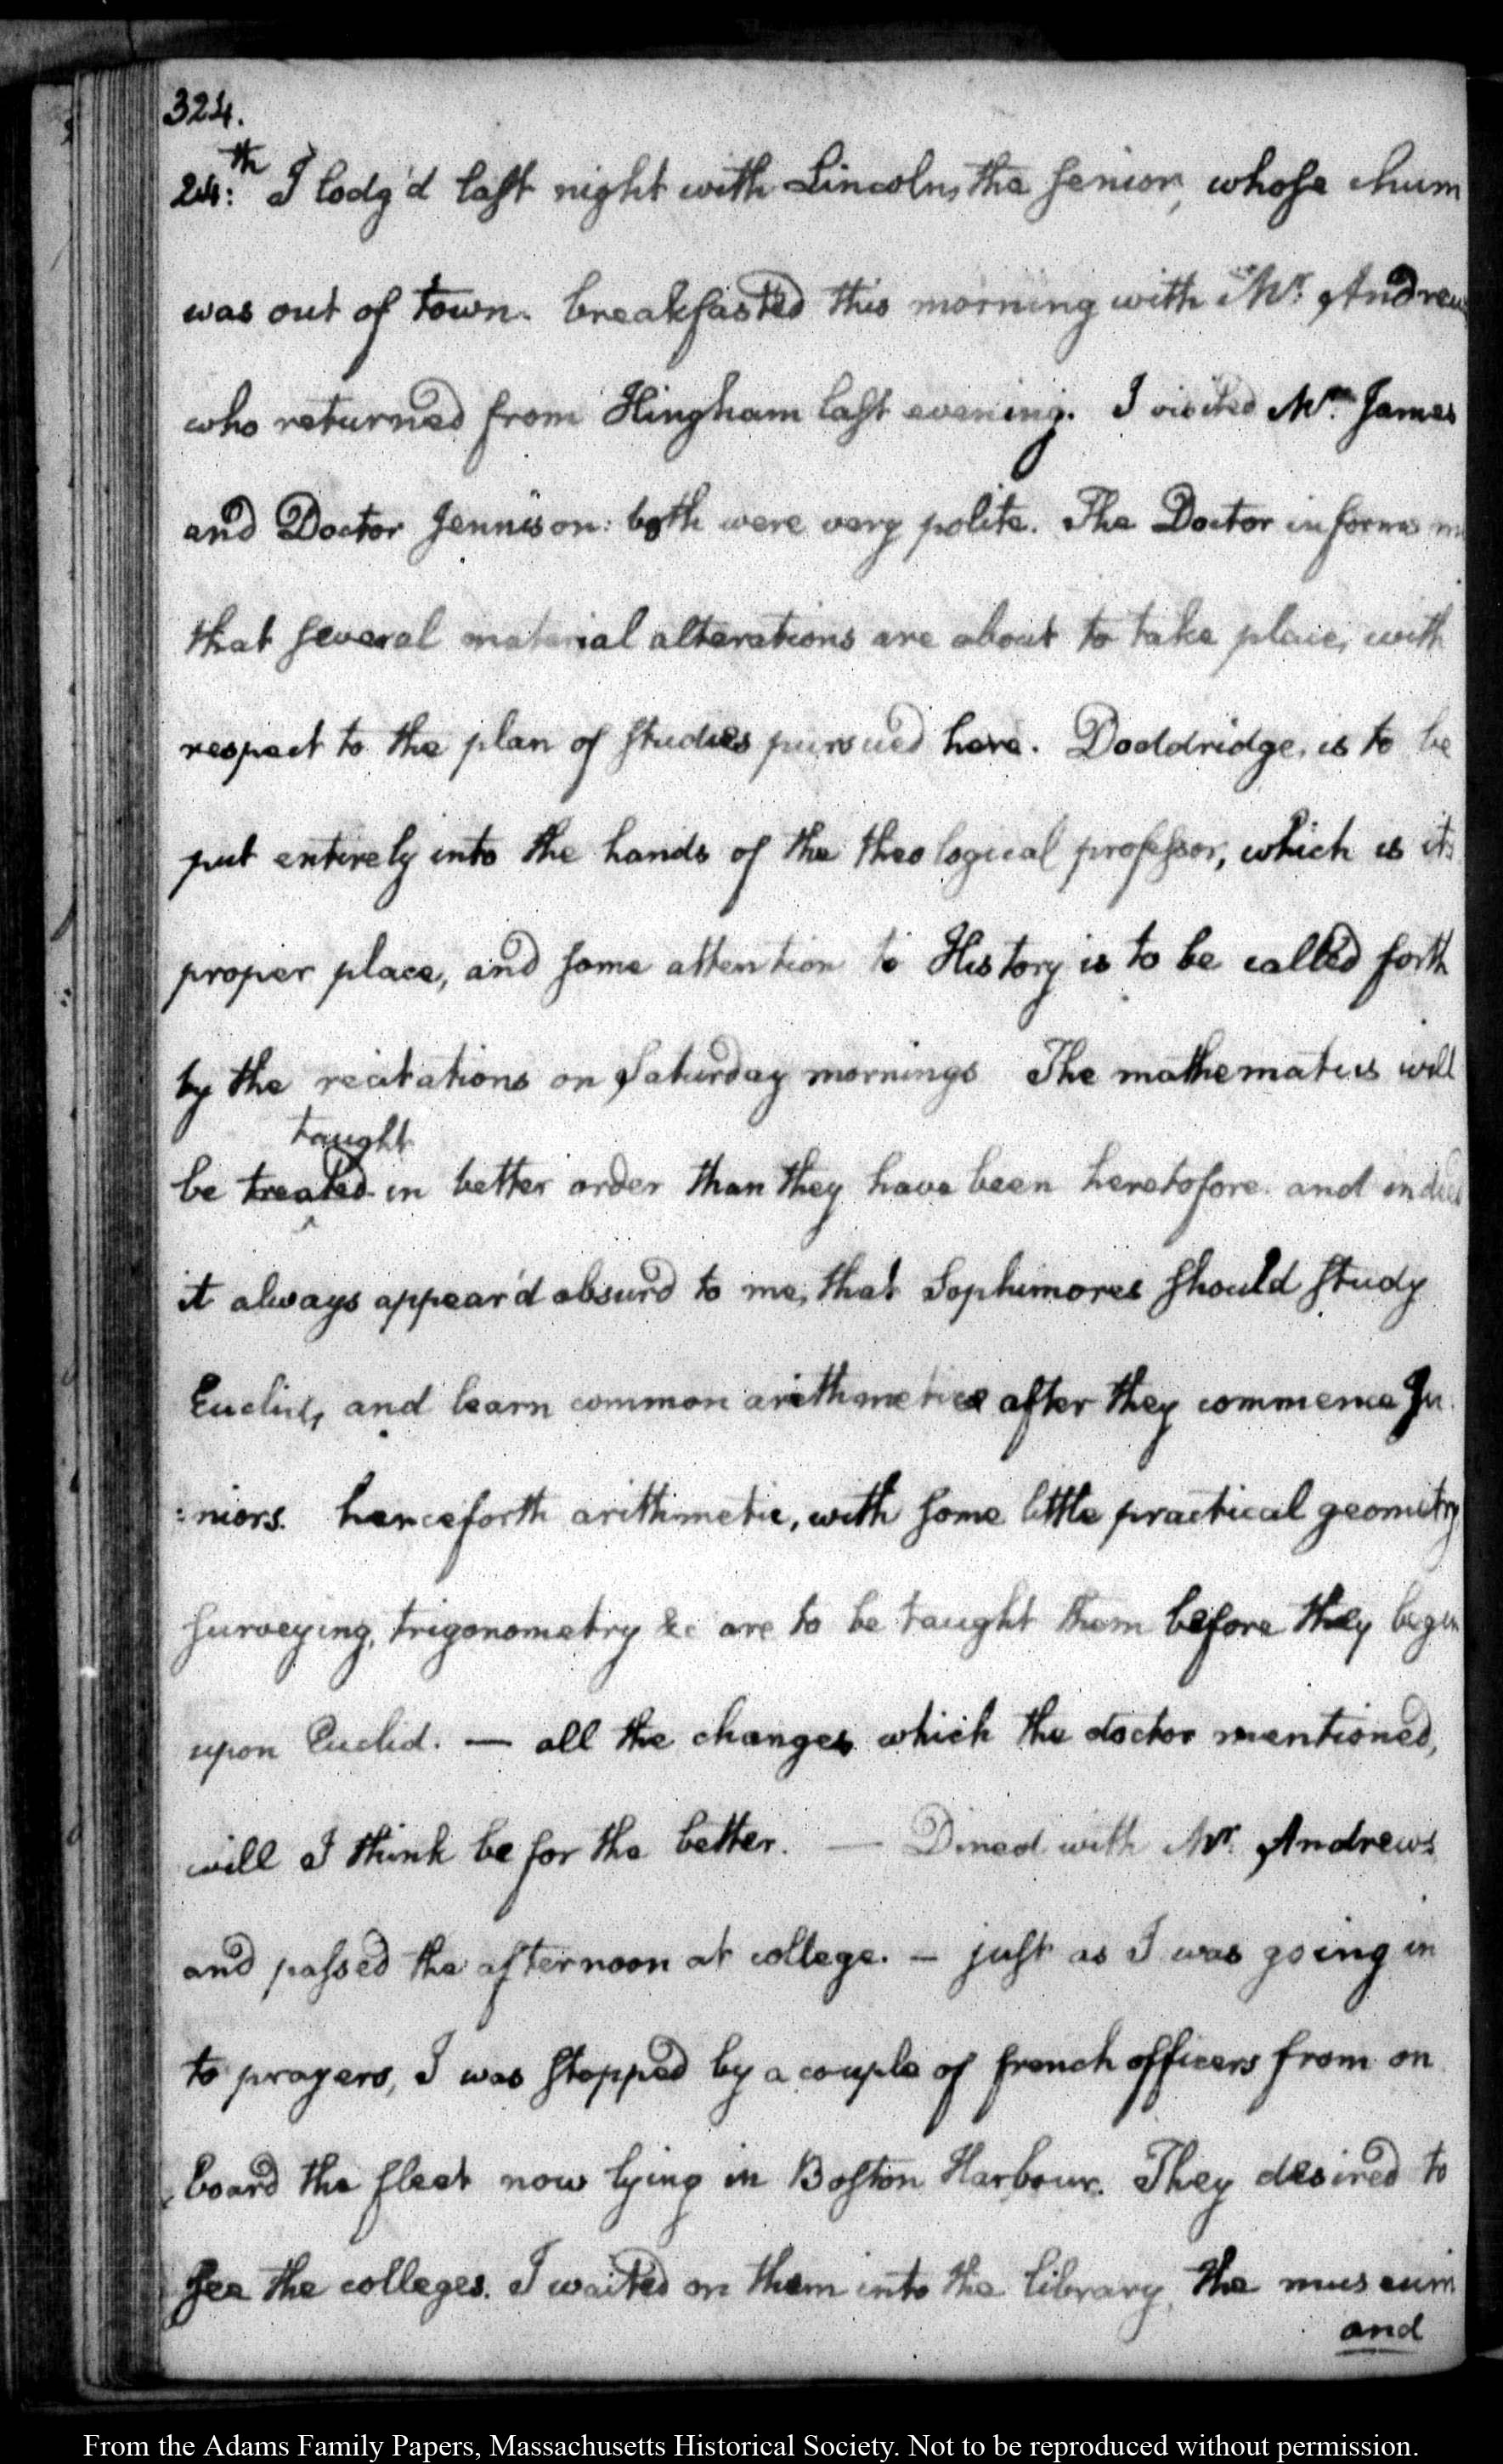 324.
24:th I lodg'd last night with Lincoln, the senior, whose chum
was out of town. breakfasted this morning with Mr. Andrews
who returned from Hingham last evening. I visited Mr. James
and Doctor Jennison: both were very polite. The Doctor informs me
that several material alterations are about to take place, with
respect to the plan of studies pursued here. Doddridge, is to be
put entirely into the hands of the theological professor, which is its
proper place, and some attention to History is to be called forth
by the recitations on Saturday mornings The mathematics will
taught
be treated in better order than they have been heretofore. and indeed
it always appear'd absurd to me, that Sophimores should study
Euclid, and learn common arithmetick after they commence Ju:
:niors. henceforth arithmetic, with some little practical geometry
surveying, trigonometry &c are to be taught them before they begin
upon Euclid. — all the changes which the doctor mentioned,
will I think be for the better. — Dined with Mr. Andrews
and passed the afternoon at college. — just as I was going in
to prayers, I was stopped by a couple of french officers from on
board the fleet now lying in Boston Harbour. They desired to
see the colleges. I waited on them into the library, the museum
and
From the Adams Family Papers, Massachusetts Historical Society. Not to be reproduced without permission.